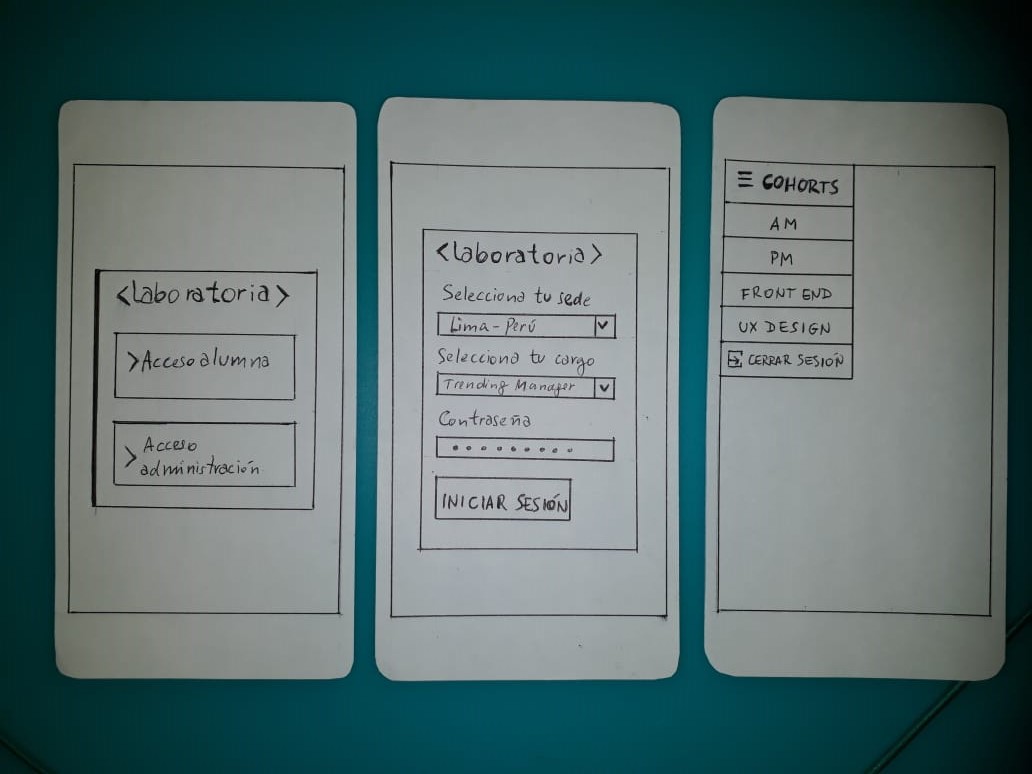 <Laboratoria>
>Acceso alumna
>Acceso
administración
<Laboratoria>
Selecciona tu sede
Lima-Perú
Selecciona tu cargo
Trending Manager
Contraseña
INICIAR SESIÓN
☰ COHORTS
AM
PM
FRONT END
UX DESIGN
CERRAR SESIÓN